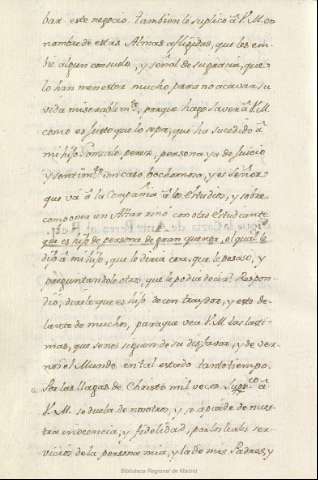 bar este negocio. Tambien lo suplico â V. M. en
nombre de estas Almas afligidas, que les em-
bie algun consuelo, y señal de su gracia, que
lo han menester mucho para no acavar su
vida miserablem.te, porque hago saver â V. M.
como es justo que lo sepa, que ha sucedido â
mi hijo Gonzalo perez, persona ya de juicio
y sentim.to, un caso bochornoso, y es Señor
que vâ â la Compañia â los estudios, y sobre
como oner un Añar rino con otro estudiante
que es hijo de persona de gran quenta, el qual le
dijo â mi hijo, que le diera cosa, que le pesase, y
preguntandole otro, que le podia decir? Respon-
dio, dirále que es hijo de un traydor, y esto de-
lante de muchos, para que vea V. M. las lasti-
mas, que se nos siguen de su disfavor, y de ver-
nos el Mundo en tal estado tanto tiempo.
Por las llagas de Christo mil veces Supp.co â
V. M. se duela de nosotros, y, se apiade de nues-
tra inocencia, y fidelidad, por los leales ser-
vicios de la persona mia, y la de mis Padres, y
Biblioteca Regional de Madrid